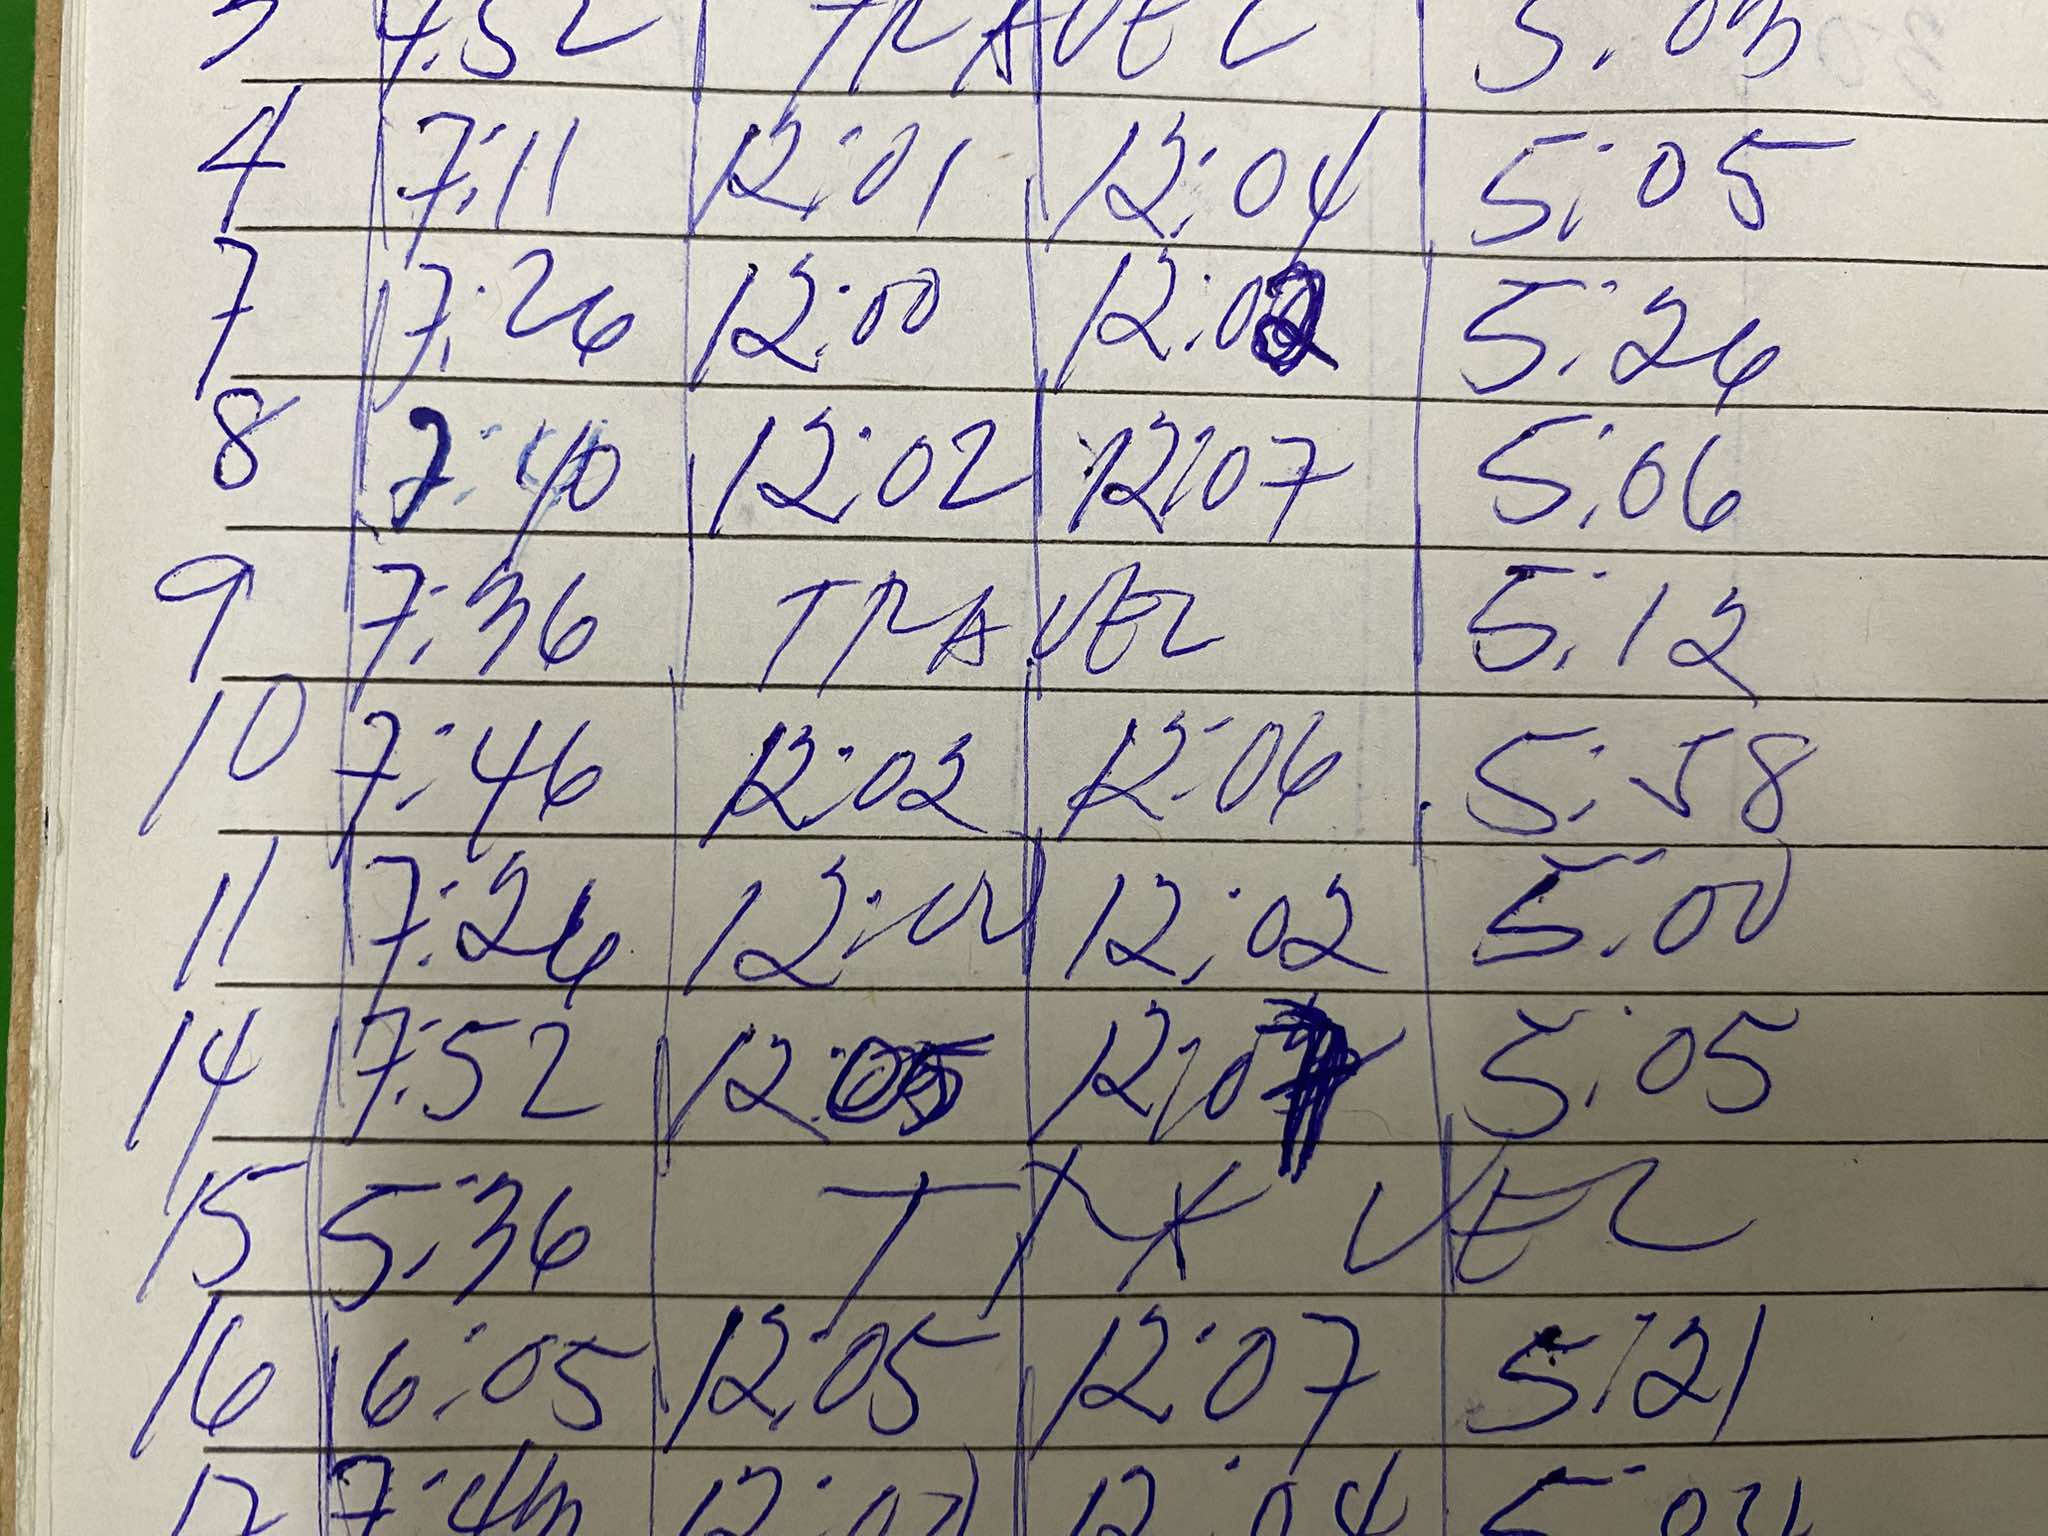 3 4:52 TRAVEL 5:03
4 7:11 12:01 12:04 5:05
7 7:26 12:00 12:02 5:26
8 7:40 12:02 12:07 5:06
9 7:36 TRAVEL 5:12
10 7:46 12:02 12:06 5:58
11 7:26 12:00 12:02 5:00
14 7:52 12:05 12:07 5:05
15 5:36 TRAVEL
16 6:05 12:05 12:07 5:21
17 12:04